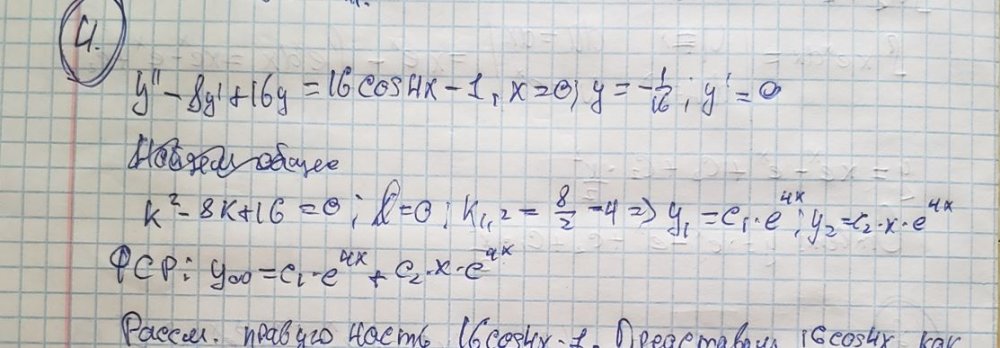 4.
y'' - 8y' + 16y = 16 cos 4x - 1, x = 0; y = -1/16; y' = 0
Найдем общее
k² - 8k + 16 = 0; D = 0; k₁,₂ = 8/2 = 4 => y₁ = c₁·e^4x; y₂ = c₂·x·e^4x
ФСР: y₀₀ = c₁·e^4x + c₂·x·e^4x
Рассм. правую часть 16cos4x - 1. Представим 16cos4x как